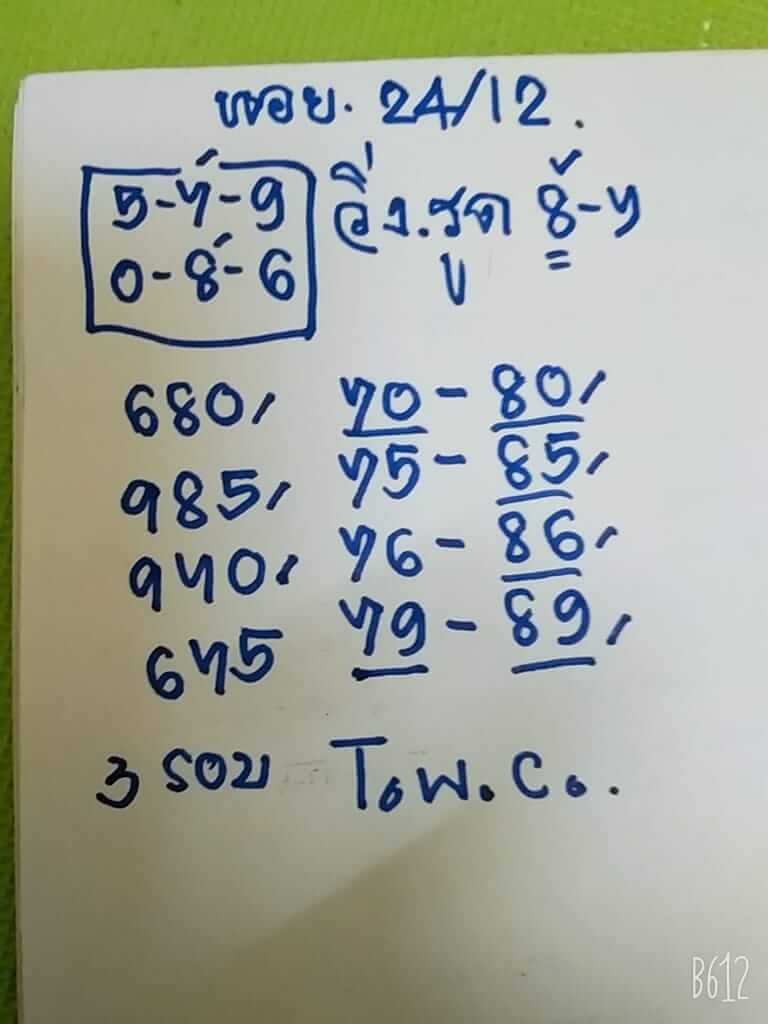 หอย. 24/12.
5-7-9
0-8-6
วิ่ง.รูด 8-7
บ
680, 70-80,
985, 75-85,
970, 76-86,
675 79-89,
3 รอบ T.พ.c..
B612